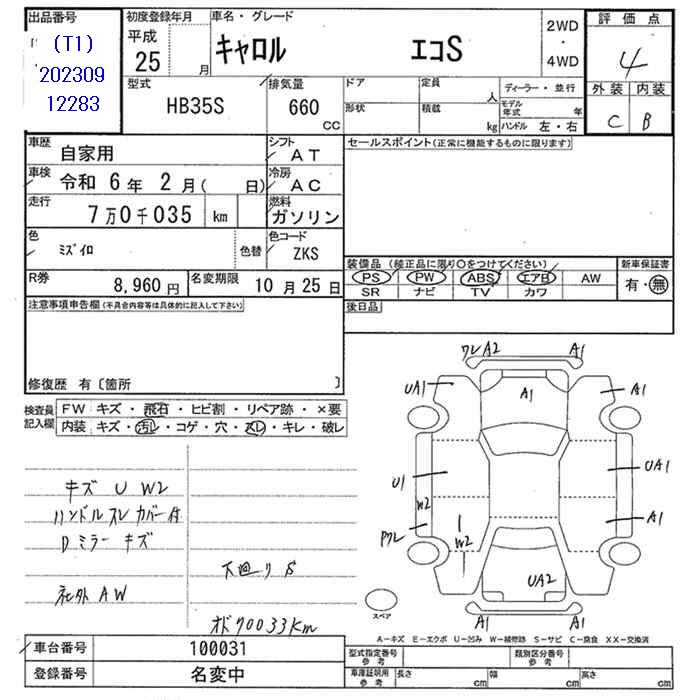 出品番号
(T1)
202309
12283
初度登録年月
平成
25 月
車名・グレード
キャロル エコS
2WD
・
4WD
評価点
4
外装 内装
C B
型式
HB35S
排気量
660
CC
ドア
形状
定員
人
積載
kg
ディーラー・並行
モデル年式 年
ハンドル 左・右
車歴
自家用
シフト
AT
車検
令和 6年 2月( 日)
冷房
AC
走行
7万0千035 km
燃料
ガソリン
色
ミズイロ
色替
色コード
ZKS
R券
8,960 円
名変期限
10月25日
セールスポイント(正常に機能するものに限ります)
装備品 (純正品に限り○をつけてください)
PS PW ABS エアB AW
SR ナビ TV カワ
新車保証書
有・無
後日品
注意事項申告欄(不具合内容等は具体的に記入して下さい)
修復歴 有〔箇所 〕
検査員
記入欄
FW キズ・飛石・ヒビ割・リペア跡・×要
内装 キズ・汚レ・コゲ・穴・スレ・キレ・破レ
キズ U W2
ハンドルスレ カバー付
Dミラーキズ
社外 AW
下廻り S
オド70033km
ワレA2 A1
UA1 A1 A1
U1 UA1
W2
A1
W2
UA2
A1 A1
スペア
A−キズ E−エクボ U−凹み W−補修跡 S−サビ C−腐食 XX−交換済
車台番号
100031
登録番号
名変中
型式指定番号
参考
類別区分番号
参考
車庫証明用
参考
長さ cm
幅 cm
高さ cm